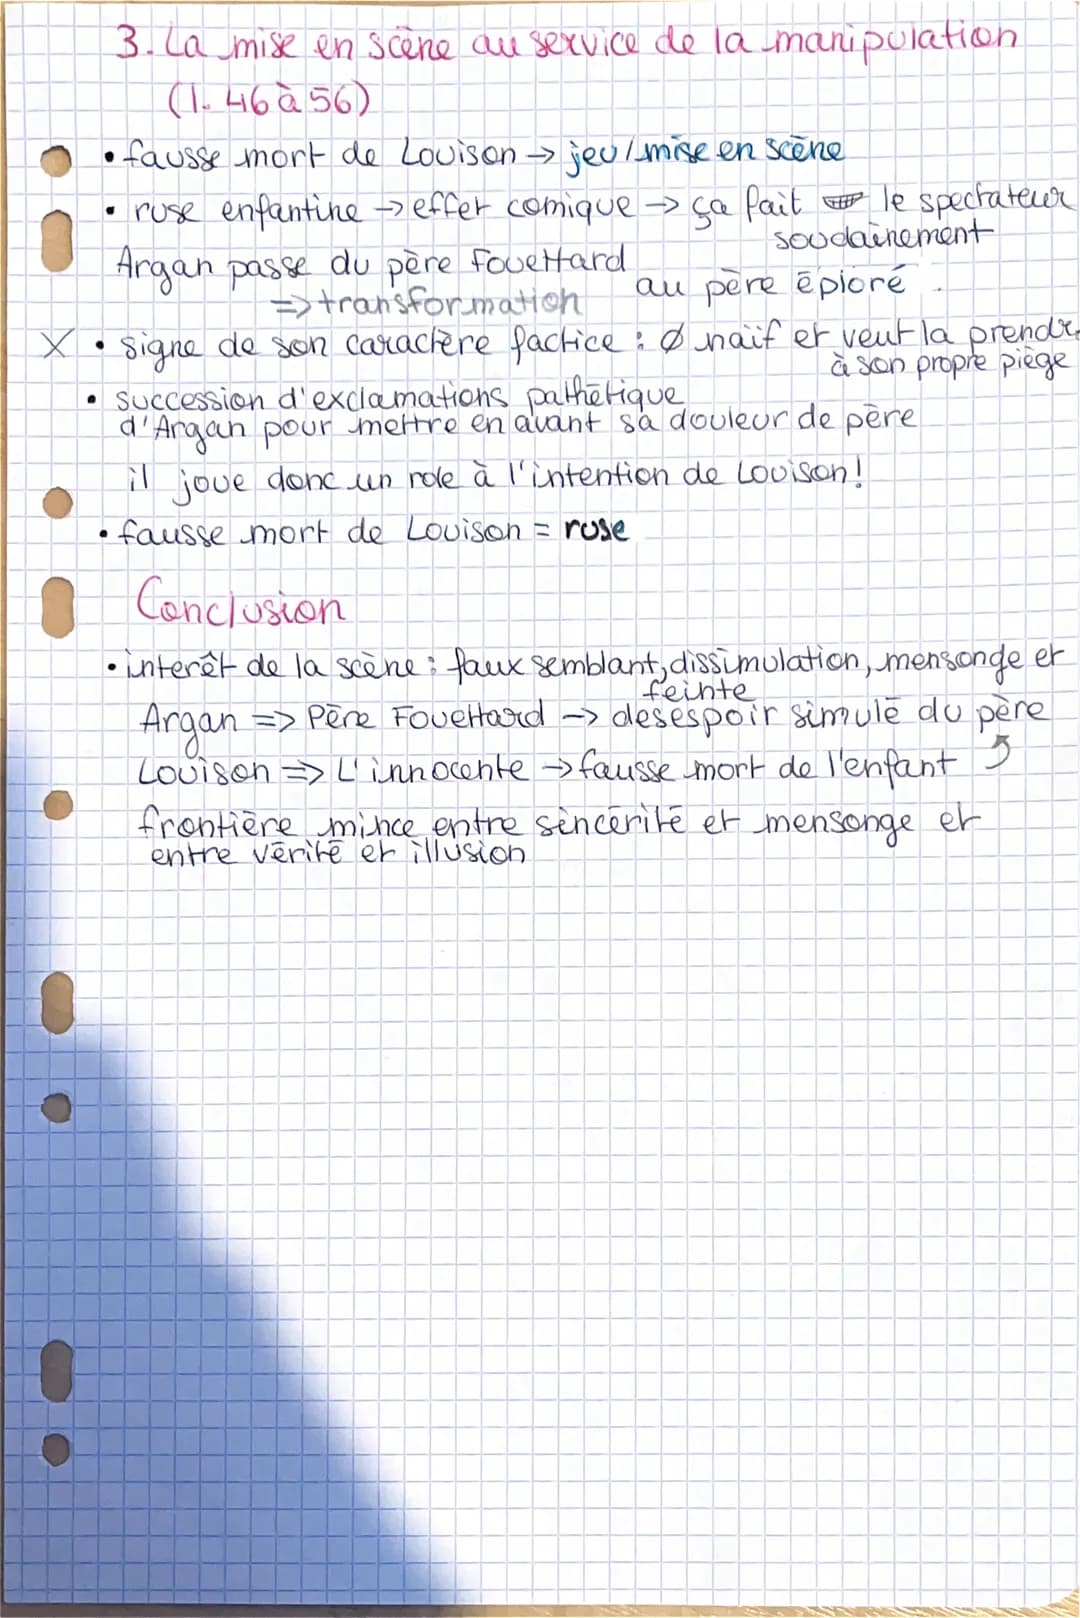 3. La mise en scène au service de la manipulation
(l. 46 à 56)
• fausse mort de Louison → jeu/mise en scène
• ruse enfantine → effet comique → ça fait le spectateur
soudainement
Argan passe du père Fouettard
au père éploré.
=> transformation
X • signe de son caractère factice : Ø naïf et veut la prendre
à son propre piège
• succession d'exclamations pathétique
d'Argan pour mettre en avant sa douleur de père
il joue donc un role à l'intention de Louison!
• fausse mort de Louison = ruse
Conclusion
• interêt de la scène : faux semblant, dissimulation, mensonge et
feinte
Argan => Père Fouettard -> desespoir simulé du père
Louison => L'innocente → fausse mort de l'enfant
frontière mince entre sincérité et mensonge et
entre vérité et illusion